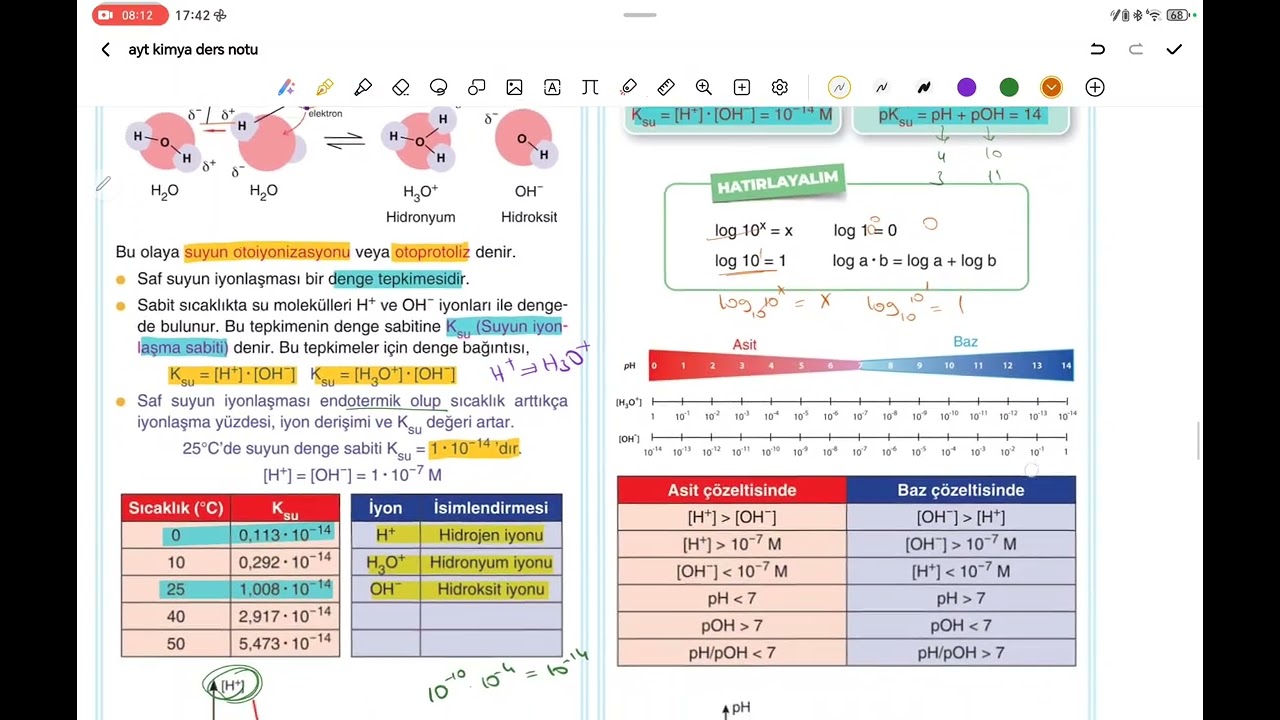 08:12 17:42 68
ayt kimya ders notu
δ⁻ δ⁺ elektron δ⁻
H O H H H O H H O H
δ⁺ δ⁻
H₂O H₂O H₃O⁺ OH⁻
Hidronyum Hidroksit
Bu olaya suyun otoiyonizasyonu veya otoprotoliz denir.
Saf suyun iyonlaşması bir denge tepkimesidir.
Sabit sıcaklıkta su molekülleri H⁺ ve OH⁻ iyonları ile denge-
de bulunur. Bu tepkimenin denge sabitine Kₛᵤ (Suyun iyon-
laşma sabiti) denir. Bu tepkimeler için denge bağıntısı,
Kₛᵤ = [H⁺]·[OH⁻] Kₛᵤ = [H₃O⁺]·[OH⁻]
H⁺ ⇒ H₃O⁺
Saf suyun iyonlaşması endotermik olup sıcaklık arttıkça
iyonlaşma yüzdesi, iyon derişimi ve Kₛᵤ değeri artar.
25°C'de suyun denge sabiti Kₛᵤ = 1·10⁻¹⁴ 'dır.
[H⁺] = [OH⁻] = 1·10⁻⁷ M
Sıcaklık (°C) Kₛᵤ
0 0,113·10⁻¹⁴
10 0,292·10⁻¹⁴
25 1,008·10⁻¹⁴
40 2,917·10⁻¹⁴
50 5,473·10⁻¹⁴
İyon İsimlendirmesi
H⁺ Hidrojen iyonu
H₃O⁺ Hidronyum iyonu
OH⁻ Hidroksit iyonu
[H⁺]
10⁻¹⁰ · 10⁻⁴ = 10⁻¹⁴
Kₛᵤ = [H⁺]·[OH⁻] = 10⁻¹⁴ M
pKₛᵤ = pH + pOH = 14
4 10
3 11
HATIRLAYALIM
log 10ˣ = x log 1 = 0 0
log 10 = 1 log a·b = log a + log b
log₁₀10ˣ = x log₁₀10¹ = 1
Asit Baz
pH 0 1 2 3 4 5 6 7 8 9 10 11 12 13 14
[H₃O⁺] 1 10⁻¹ 10⁻² 10⁻³ 10⁻⁴ 10⁻⁵ 10⁻⁶ 10⁻⁷ 10⁻⁸ 10⁻⁹ 10⁻¹⁰ 10⁻¹¹ 10⁻¹² 10⁻¹³ 10⁻¹⁴
[OH⁻] 10⁻¹⁴ 10⁻¹³ 10⁻¹² 10⁻¹¹ 10⁻¹⁰ 10⁻⁹ 10⁻⁸ 10⁻⁷ 10⁻⁶ 10⁻⁵ 10⁻⁴ 10⁻³ 10⁻² 10⁻¹ 1
Asit çözeltisinde Baz çözeltisinde
[H⁺] > [OH⁻] [OH⁻] > [H⁺]
[H⁺] > 10⁻⁷ M [OH⁻] > 10⁻⁷ M
[OH⁻] < 10⁻⁷ M [H⁺] < 10⁻⁷ M
pH < 7 pH > 7
pOH > 7 pOH < 7
pH/pOH < 7 pH/pOH > 7
pH